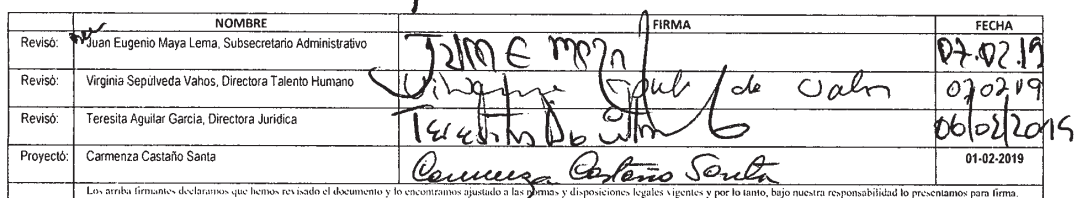 NOMBRE FIRMA FECHA
Revisó: Juan Eugenio Maya Lema, Subsecretario Administrativo 07.02.19
Revisó: Virginia Sepúlveda Vahos, Directora Talento Humano 07 02 19
Revisó: Teresita Aguilar García, Directora Jurídica 06/02/2019
Proyectó: Carmenza Castaño Santa Carmenza Castaño Santa 01-02-2019
Los arriba firmantes declaramos que hemos revisado el documento y lo encontramos ajustado a las normas y disposiciones legales vigentes y por lo tanto, bajo nuestra responsabilidad lo presentamos para firma.